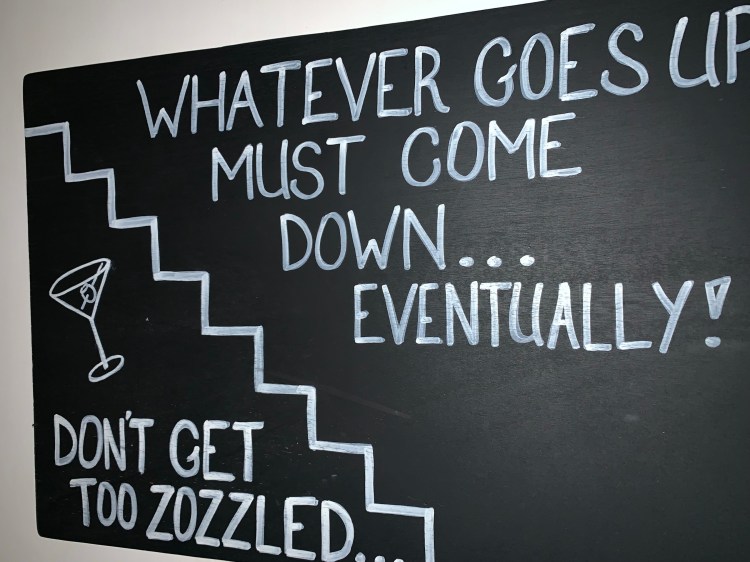 WHATEVER GOES UP
MUST COME
DOWN...
EVENTUALLY!
DON'T GET
TOO ZOZZLED...